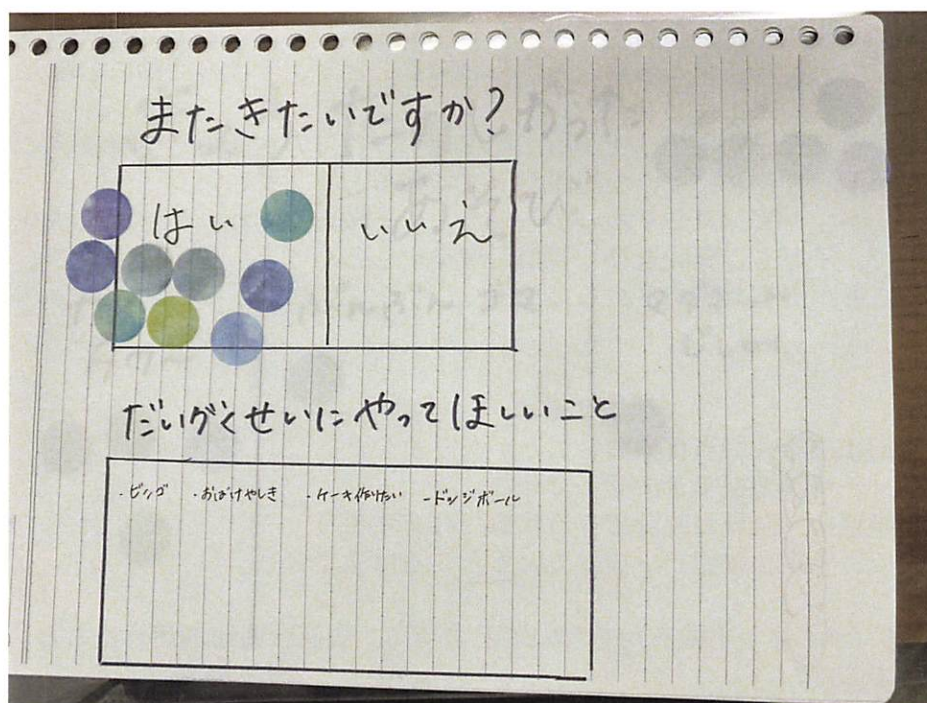 またきたいですか?
はい いいえ
だいがくせいにやってほしいこと
・ビンゴ ・おばけやしき ・ケーキ作りたい -ドッジボール